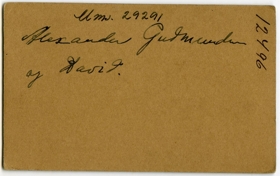 Umr. 29291
Alexander Gudmundur
af David.
12496